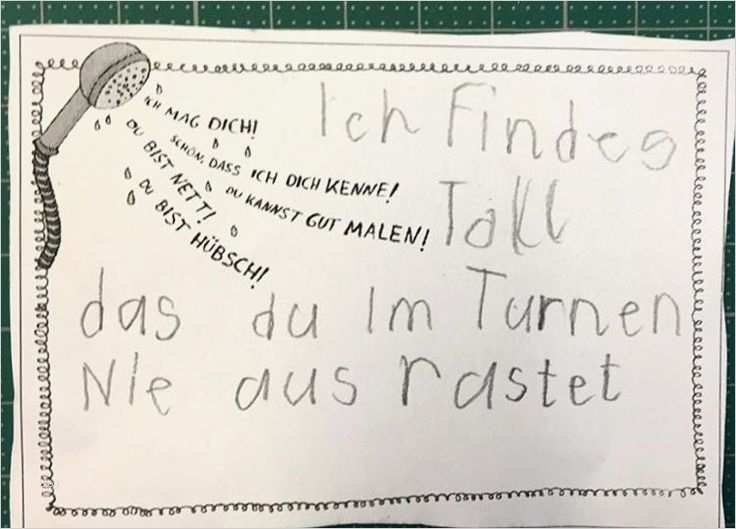 ICH MAG DICH!
SCHÖN, DASS ICH DICH KENNE!
DU BIST NETT!
DU KANNST GUT MALEN!
DU BIST HÜBSCH!
Ich Findes
Toll
das du Im Turnen
NIe aus rastet